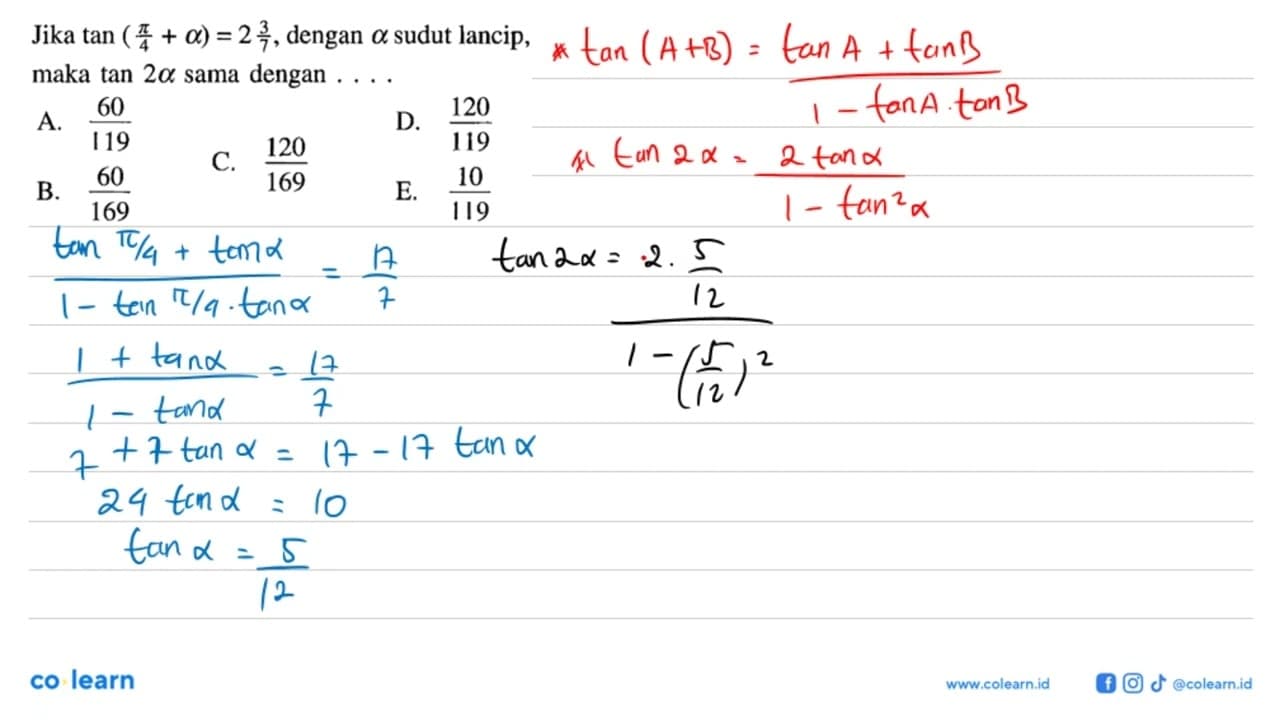 Jika tan (π/4 + α) = 2 3/7, dengan α sudut lancip,
maka tan 2α sama dengan . . . .
A. 60/119
B. 60/169
C. 120/169
D. 120/119
E. 10/119
* tan (A+B) = (tan A + tan B)/(1 - tan A . tan B)
* tan 2α = (2 tan α)/(1 - tan²α)
(tan π/4 + tan α)/(1 - tan π/4 . tan α) = 17/7
(1 + tan α)/(1 - tan α) = 17/7
7 + 7 tan α = 17 - 17 tan α
24 tan α = 10
tan α = 5/12
tan 2α = (2 . 5/12)/(1 - (5/12)²)
co learn
www.colearn.id
@colearn.id